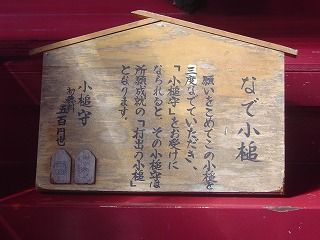 なで小槌
願いをこめてこの小槌を
三度なでていただき、
「小槌守」をお受けに
なられると その小槌守は
所願成就の「打出の小槌」
となります。
小槌守
五百円也